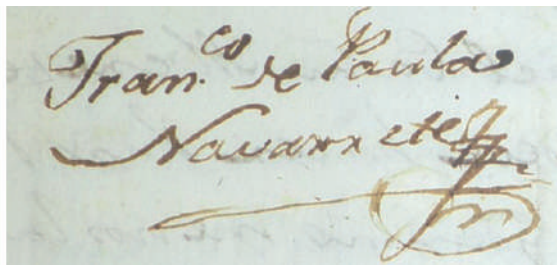 Fran.co de Paula
Navarrete